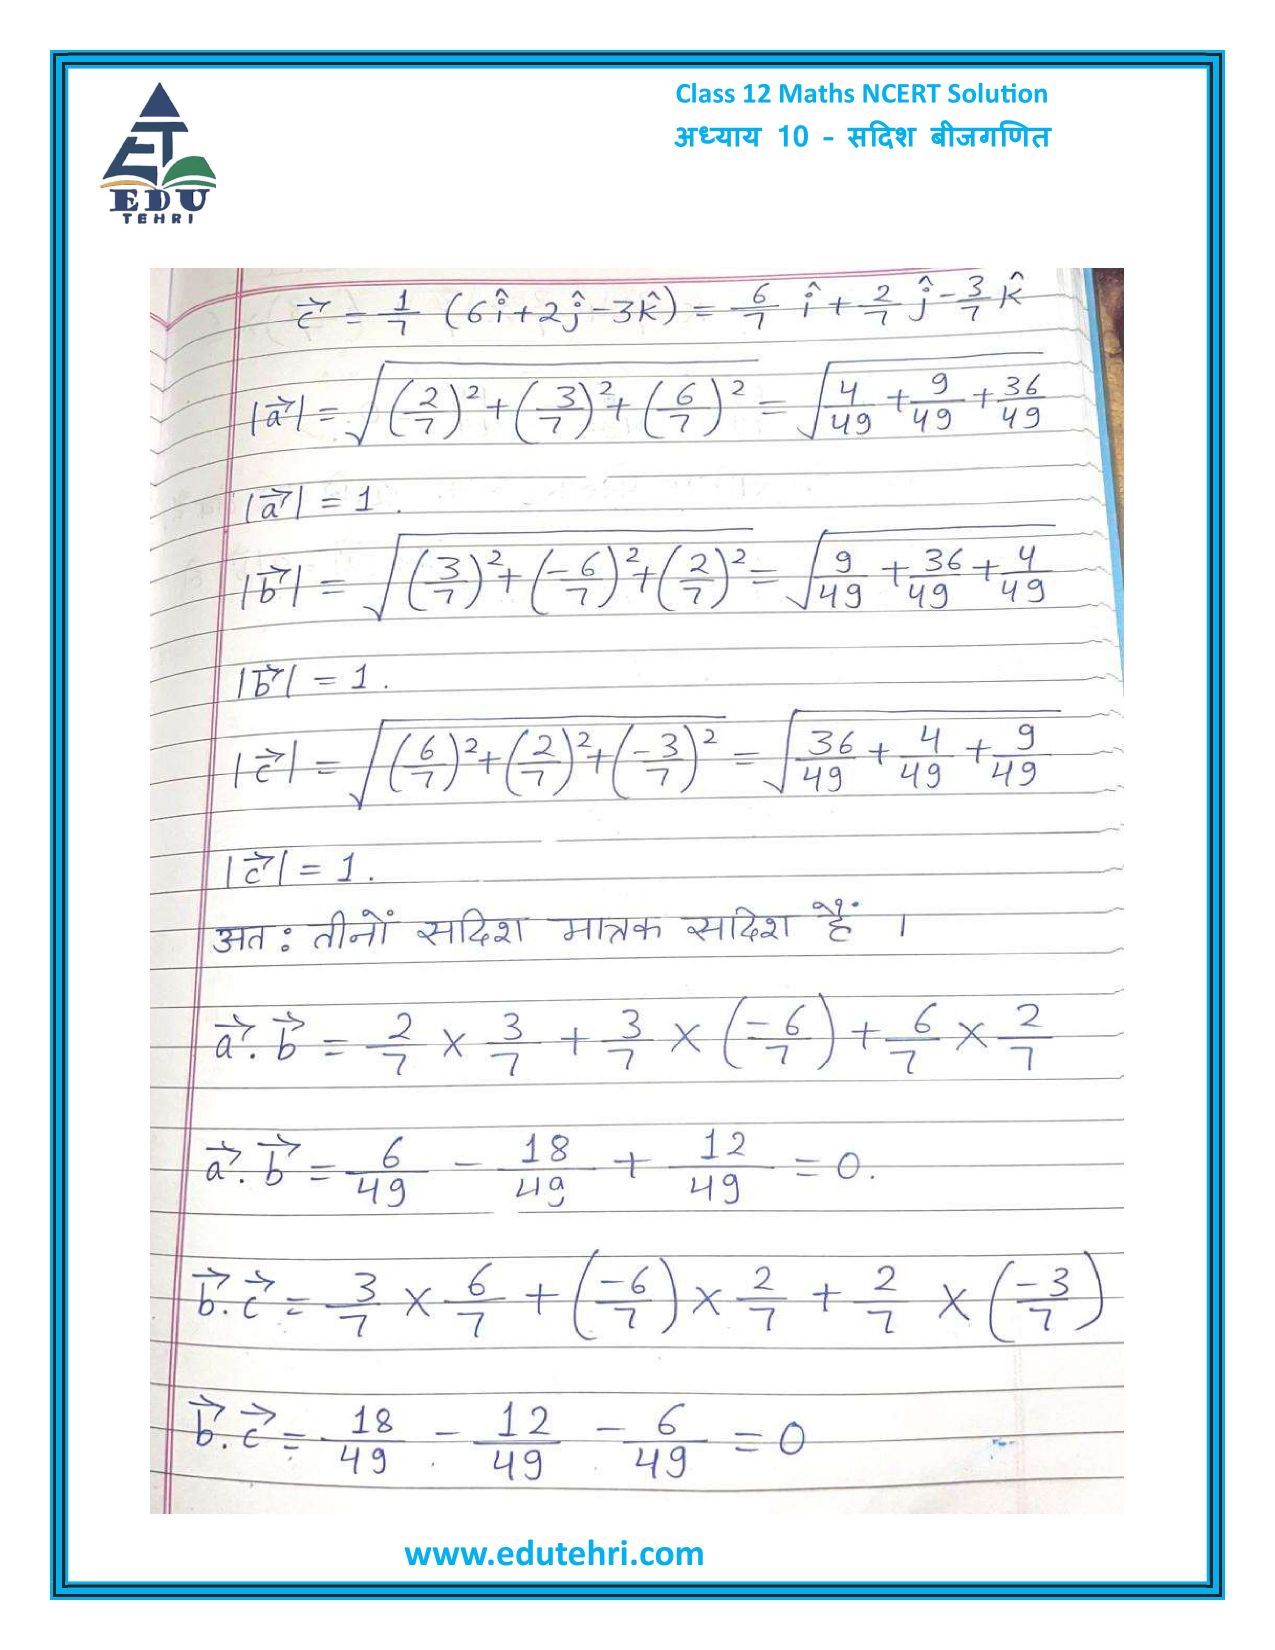 Class 12 Maths NCERT Solution
अध्याय 10 - सदिश बीजगणित
EDU
TEHRI
c⃗ = 1/7 (6î+2ĵ-3k̂) = 6/7 î + 2/7 ĵ - 3/7 k̂
|a⃗| = √((2/7)² + (3/7)² + (6/7)²) = √(4/49 + 9/49 + 36/49)
|a⃗| = 1.
|b⃗| = √((3/7)² + (-6/7)² + (2/7)²) = √(9/49 + 36/49 + 4/49)
|b⃗| = 1.
|c⃗| = √((6/7)² + (2/7)² + (-3/7)²) = √(36/49 + 4/49 + 9/49)
|c⃗| = 1.
अत: तीनों सदिश मात्रक सदिश हैं ।
a⃗.b⃗ = 2/7 × 3/7 + 3/7 × (-6/7) + 6/7 × 2/7
a⃗.b⃗ = 6/49 - 18/49 + 12/49 = 0.
b⃗.c⃗ = 3/7 × 6/7 + (-6/7) × 2/7 + 2/7 × (-3/7)
b⃗.c⃗ = 18/49 - 12/49 - 6/49 = 0
www.edutehri.com